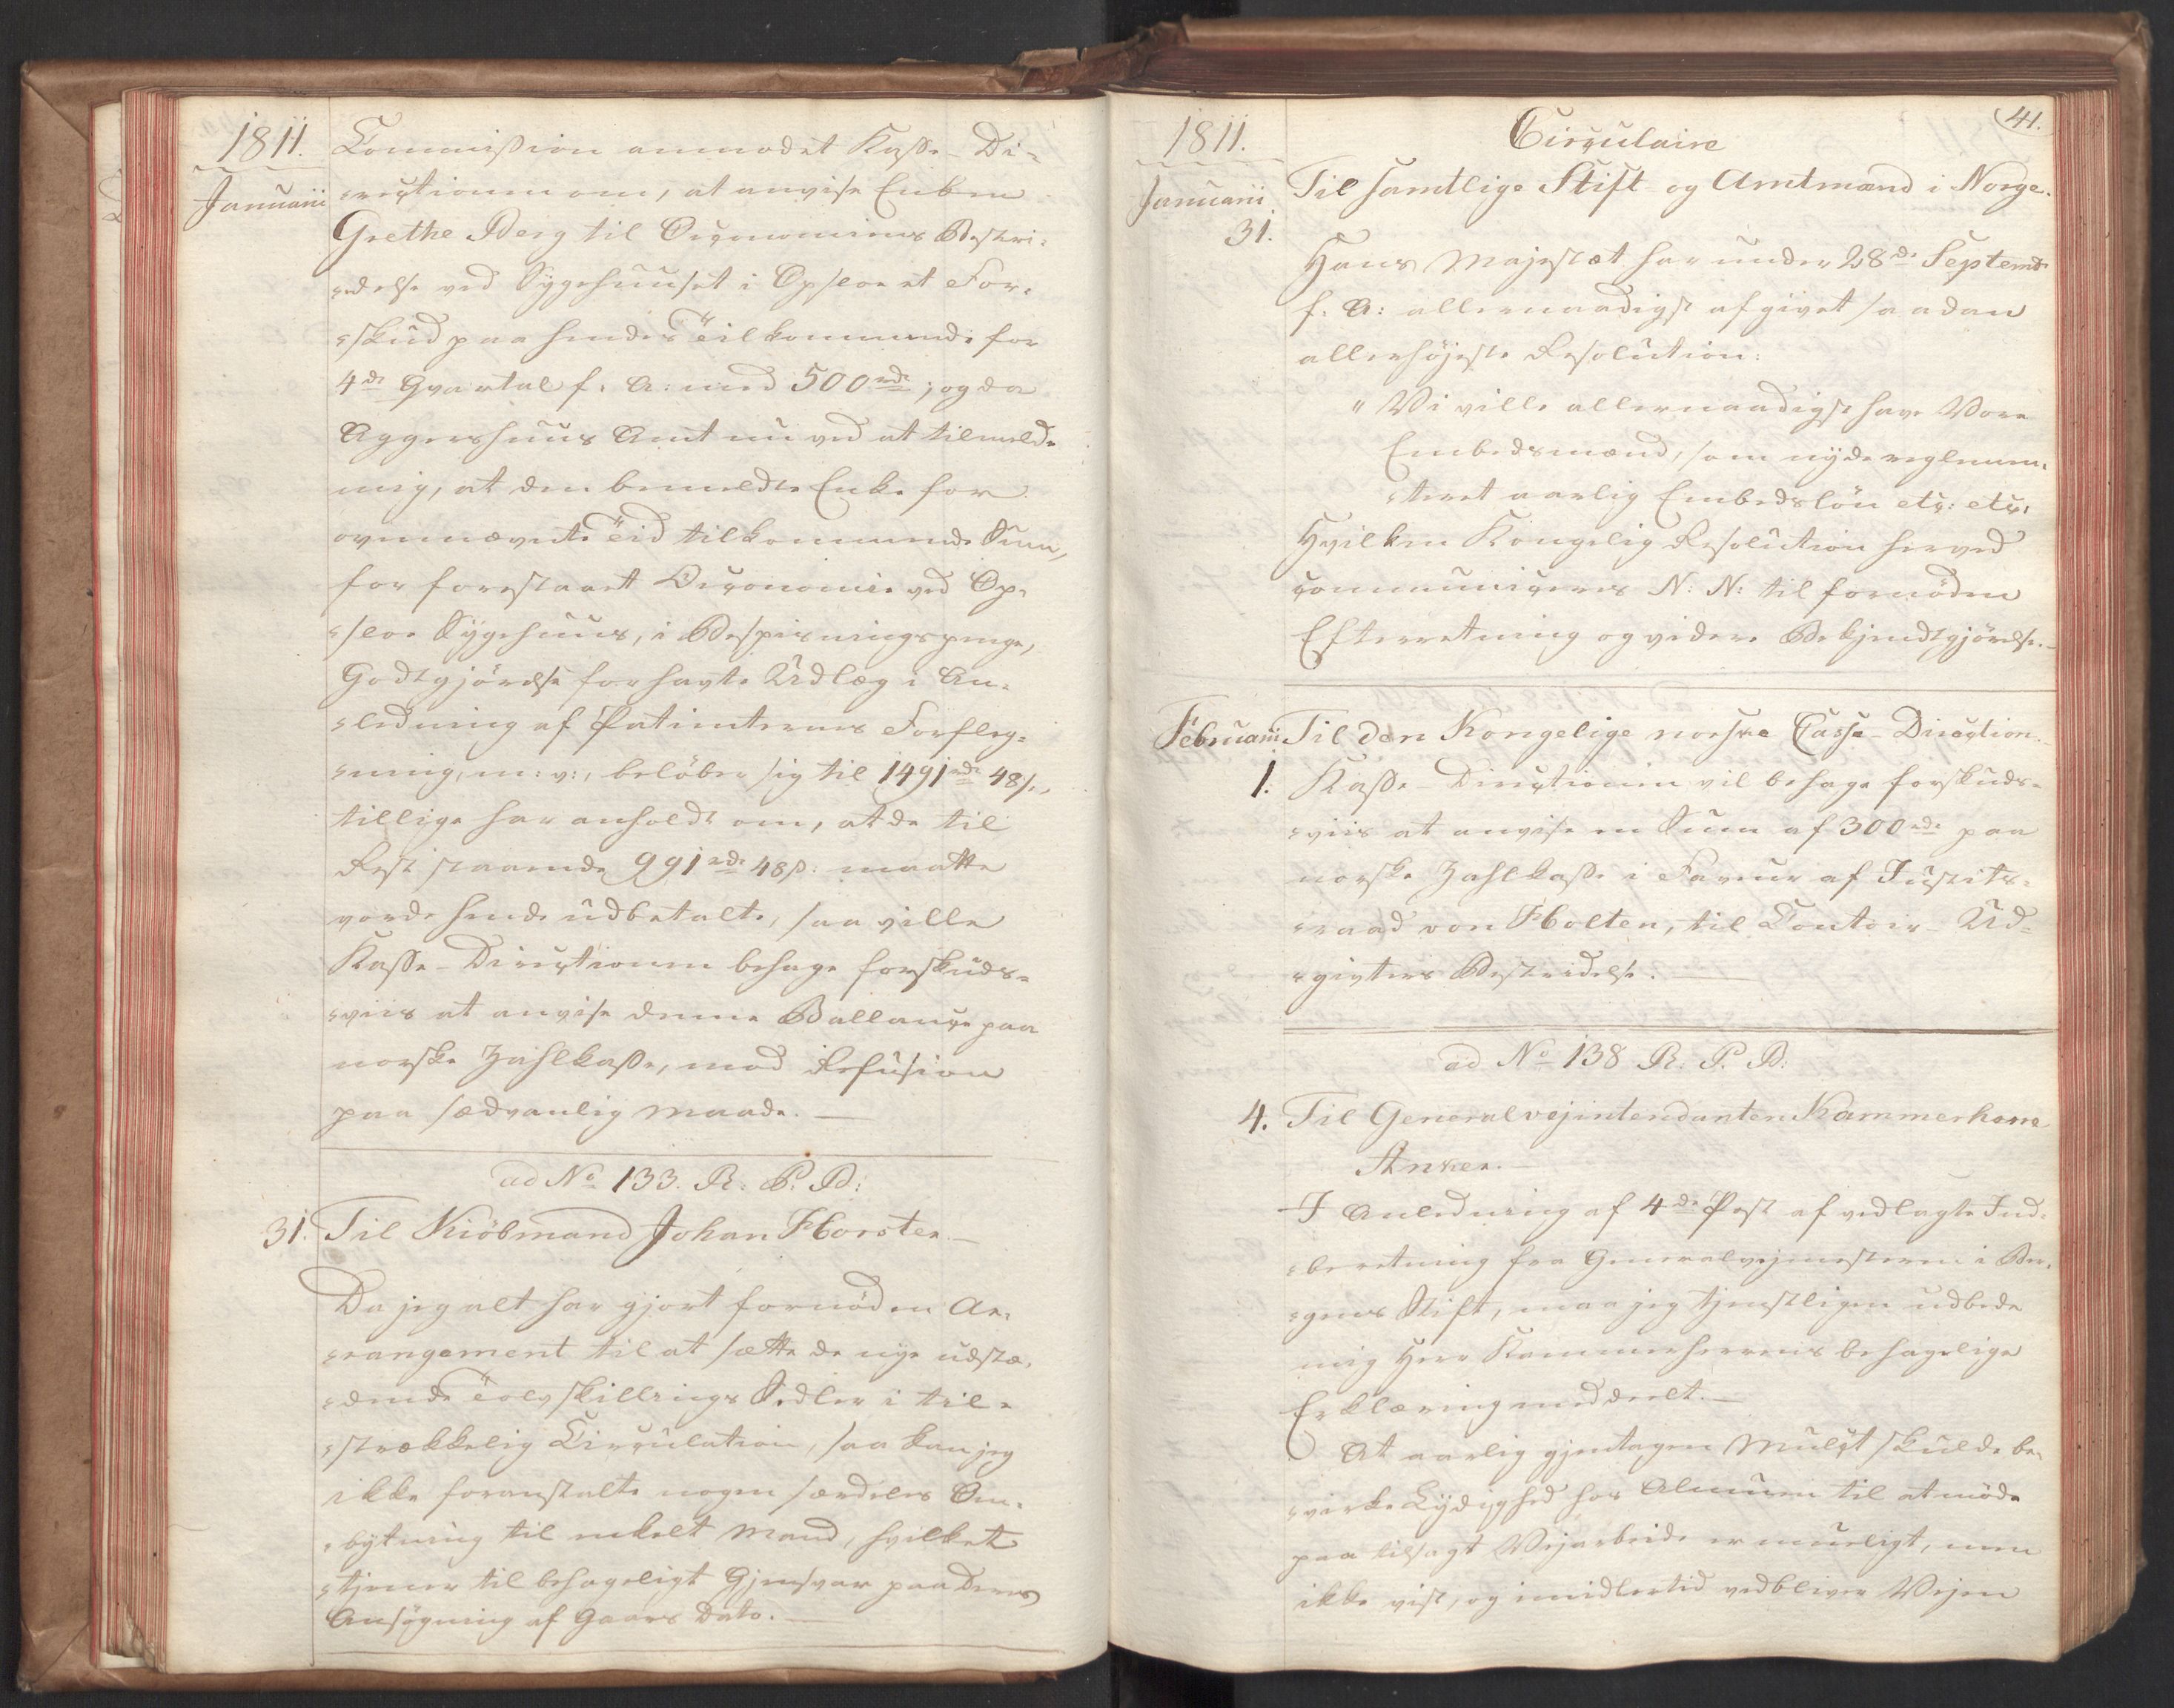 1811.
Januarii
Commission anmodet Kasse-Di-
rectionen om, at anvise Enken
Grethe Berg til Oeconomiens Bestri-
delse ved Sygehuuset i Opsloe et For-
skud paa hendes Tilkommende for
4de Qvartal f. A: med 500 rd; og da
Aggershuus Amt nu ved at tilmelde
mig, at den bemeldte Enke for
ovennævnte Tid tilkommende Sum,
for forestaaet Oeconomie ved Op-
sloe Sygehuus, i Bespisningspenge,
Godtgjörelse for havte Udlæg i An-
ledning af Patienternes Forfleg-
ning, m: v:, belöber sig til 1491 rd 48 s,
tillige har anholdt om, at de til
Rest staaende 991 rd 48 s: maatte
vorde hende udbetalte, saa ville
Kasse-Directionen behage forskuds-
viis at anvise denne Ballance paa
norske Zahlkasse, mod Refusion
paa sædvanlig Maade.
ad No 133. R: P. B:
31. Til Kiöbmand Johan Horster.
Da jeg alt har gjort fornöden Ar-
rangement til at sætte de nye udstæ-
dende Tolvskillings Sedler i til-
strækkelig Circulation, saa kan jeg
ikke foranstalte nogen særdeles Om-
bytning til enkelt Mand, hvilket
tjener til behageligt Gjensvar paa Deres
Ansögning af Gaars Dato.
41.
1811.
Januarii
31.
Circulaire
Til samtlige Stift og Amtmænd i Norge.
Hans Majestæt har under 28de Septemb
f. A: allernaadigst afgivet saadan
allerhöjeste Resolution:
" Vi ville allernaadigst have Vore
Embedsmænd, som nyde reglemen-
teret aarlig Embedslön etc: etc:
Hvilken Kongelig Resolution herved
communiceres N: N: til fornöden
Efterretning og videre Bekjendtgjörelse.
Februarii
Til den Kongelige norske Casse-Direction.
1. Kasse-Directionen vil behage forskuds-
viis at anvise en Sum af 300 rd paa
norske Zahlkasse i Faveur af Justits-
raad von Holten, til Contoir-Ud-
givters Bestridelse.
ad No 138 R. P. B:
4. Til Generalvejintendanten Kammerherre
Anker.
I Anledning af 4de Post af vedlagte Ind-
beretning fra Generalvejmesteren i Ber-
gens Stift, maa jeg tjenstligen udbede
mig Herr Kammerherrens behagelige
Erklæring meddeelt.
At aarlig gjentagen Mulct skulde be-
virke Lydighed hos Almuen til at möde
paa tilsagt Vejarbeide er mueligt, men
ikke vist, og imidlertid vedbliver Vejen